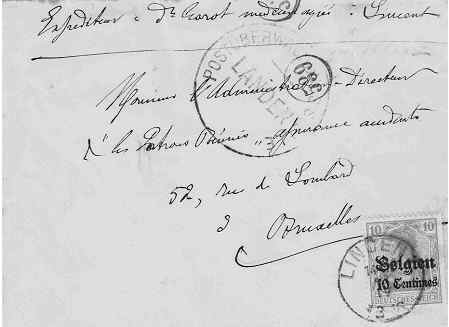 Expéditeur = Dr Corot médecin agréé = Lincent
POSTÜBERW
LANDEN
589
Monsieur l'Administrateur-Directeur
à "les Patrons Réunis" assurance accidents
52, rue de Lombard
à Bruxelles
10 10
Belgien
10 Centimes
LINCENT